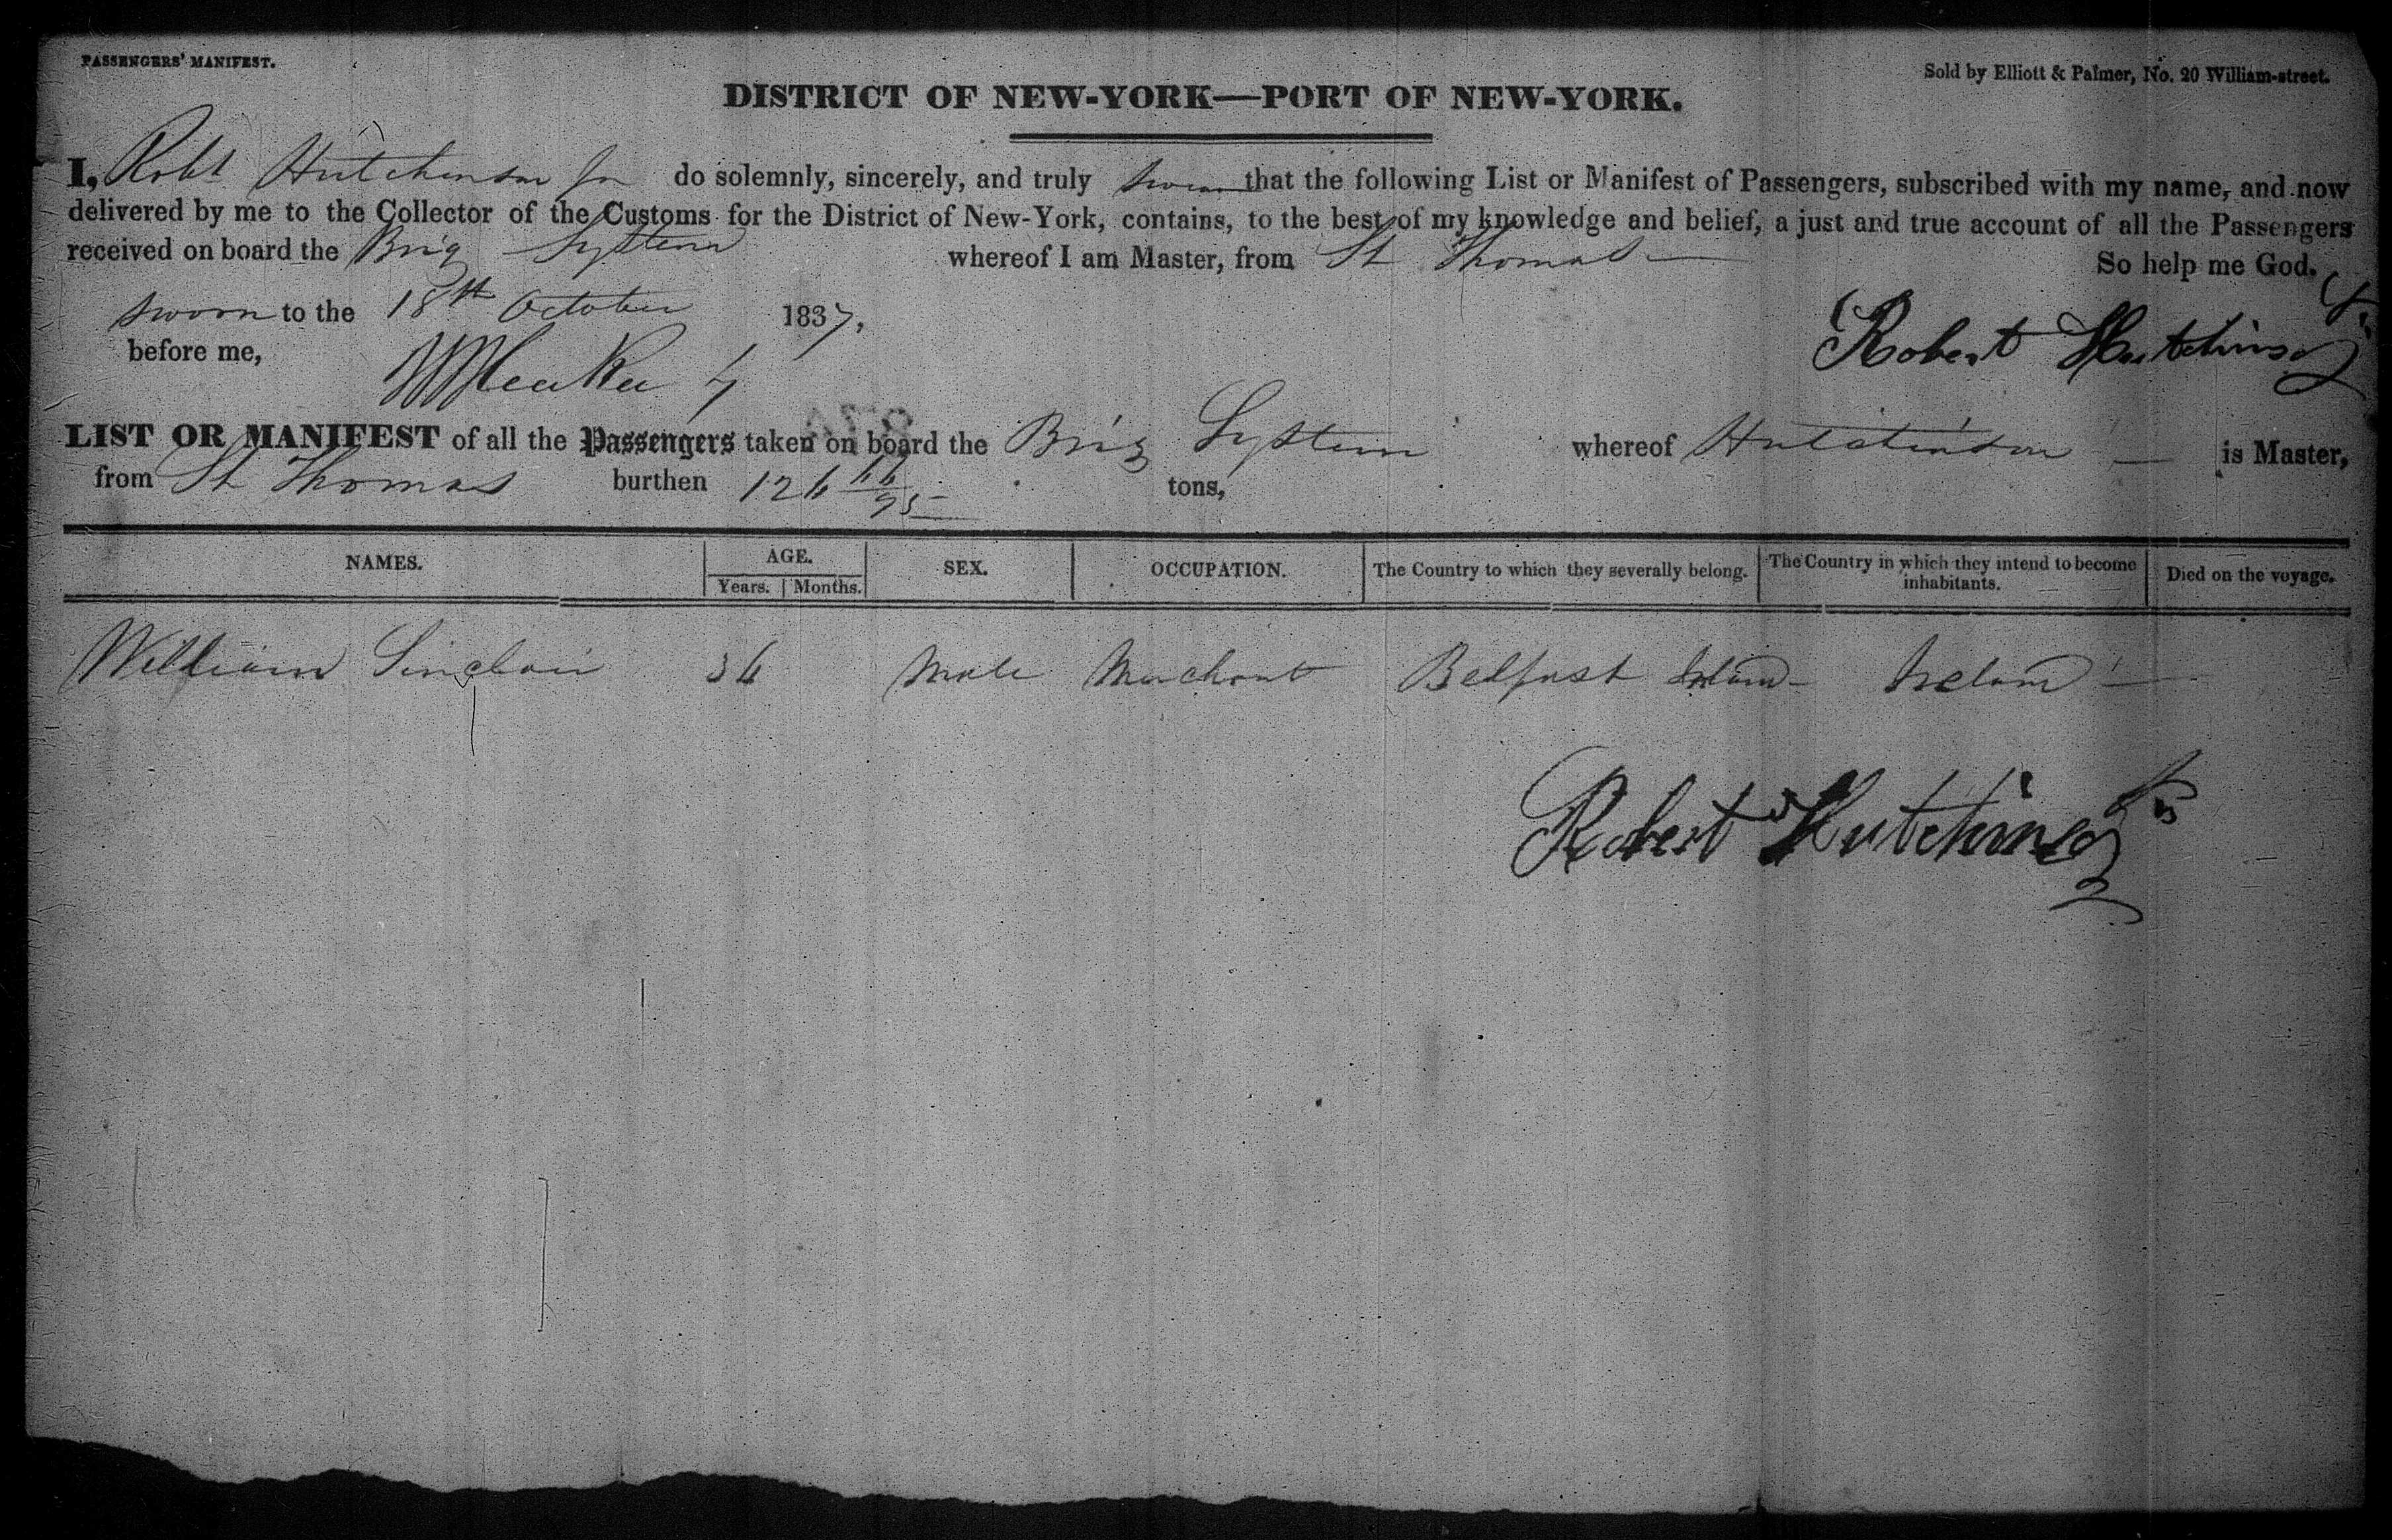 PASSENGERS' MANIFEST.
Sold by Elliott & Palmer, No. 20 William-street.
DISTRICT OF NEW-YORK—PORT OF NEW-YORK.
I, Robt Hutchinson Jr do solemnly, sincerely, and truly swear that the following List or Manifest of Passengers, subscribed with my name, and now
delivered by me to the Collector of the Customs for the District of New-York, contains, to the best of my knowledge and belief, a just and true account of all the Passengers
received on board the Brig System whereof I am Master, from St Thomas So help me God.
sworn to the 18th October 1837,
before me,
Robert Hutchinson Jr
LIST OR MANIFEST of all the Passengers taken on board the Brig System whereof Hutchinson is Master,
from St Thomas burthen 126 66/95 tons,
NAMES. AGE. SEX. OCCUPATION. The Country to which they severally belong. The Country in which they intend to become inhabitants. Died on the voyage.
Years. Months.
William Sinclair 36 Male Merchant Belfast Ireland Ireland
Robert Hutchinson Jr